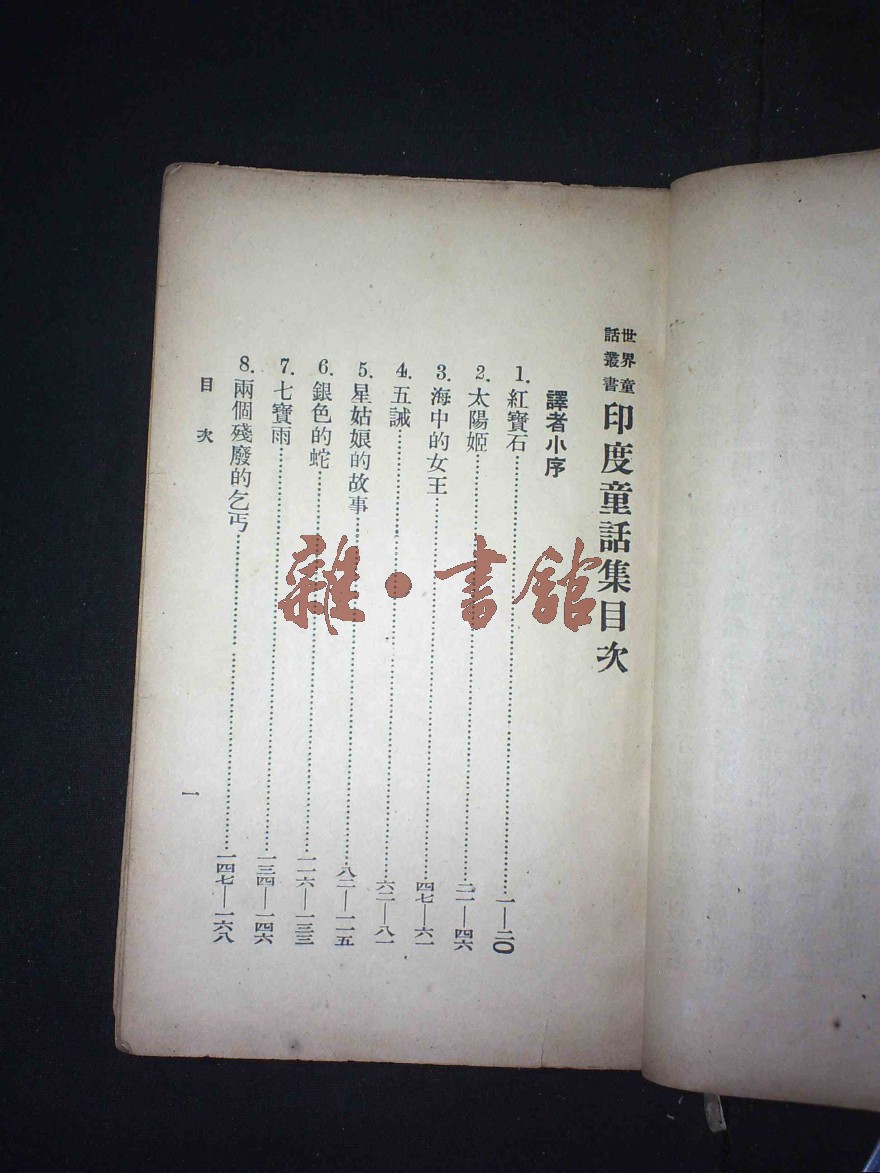 世界童話叢書
印度童話集目次
譯者小序
1. 紅寶石……一—二〇
2. 太陽姬……二一—四六
3. 海中的女王……四七—六一
4. 五誡……六二—八一
5. 星姑娘的故事……八二—一一五
6. 銀色的蛇……一一六—一三三
7. 七寶雨……一三四—一四六
8. 兩個殘廢的乞丐……一四七—一六八
目次
一
雜·書館